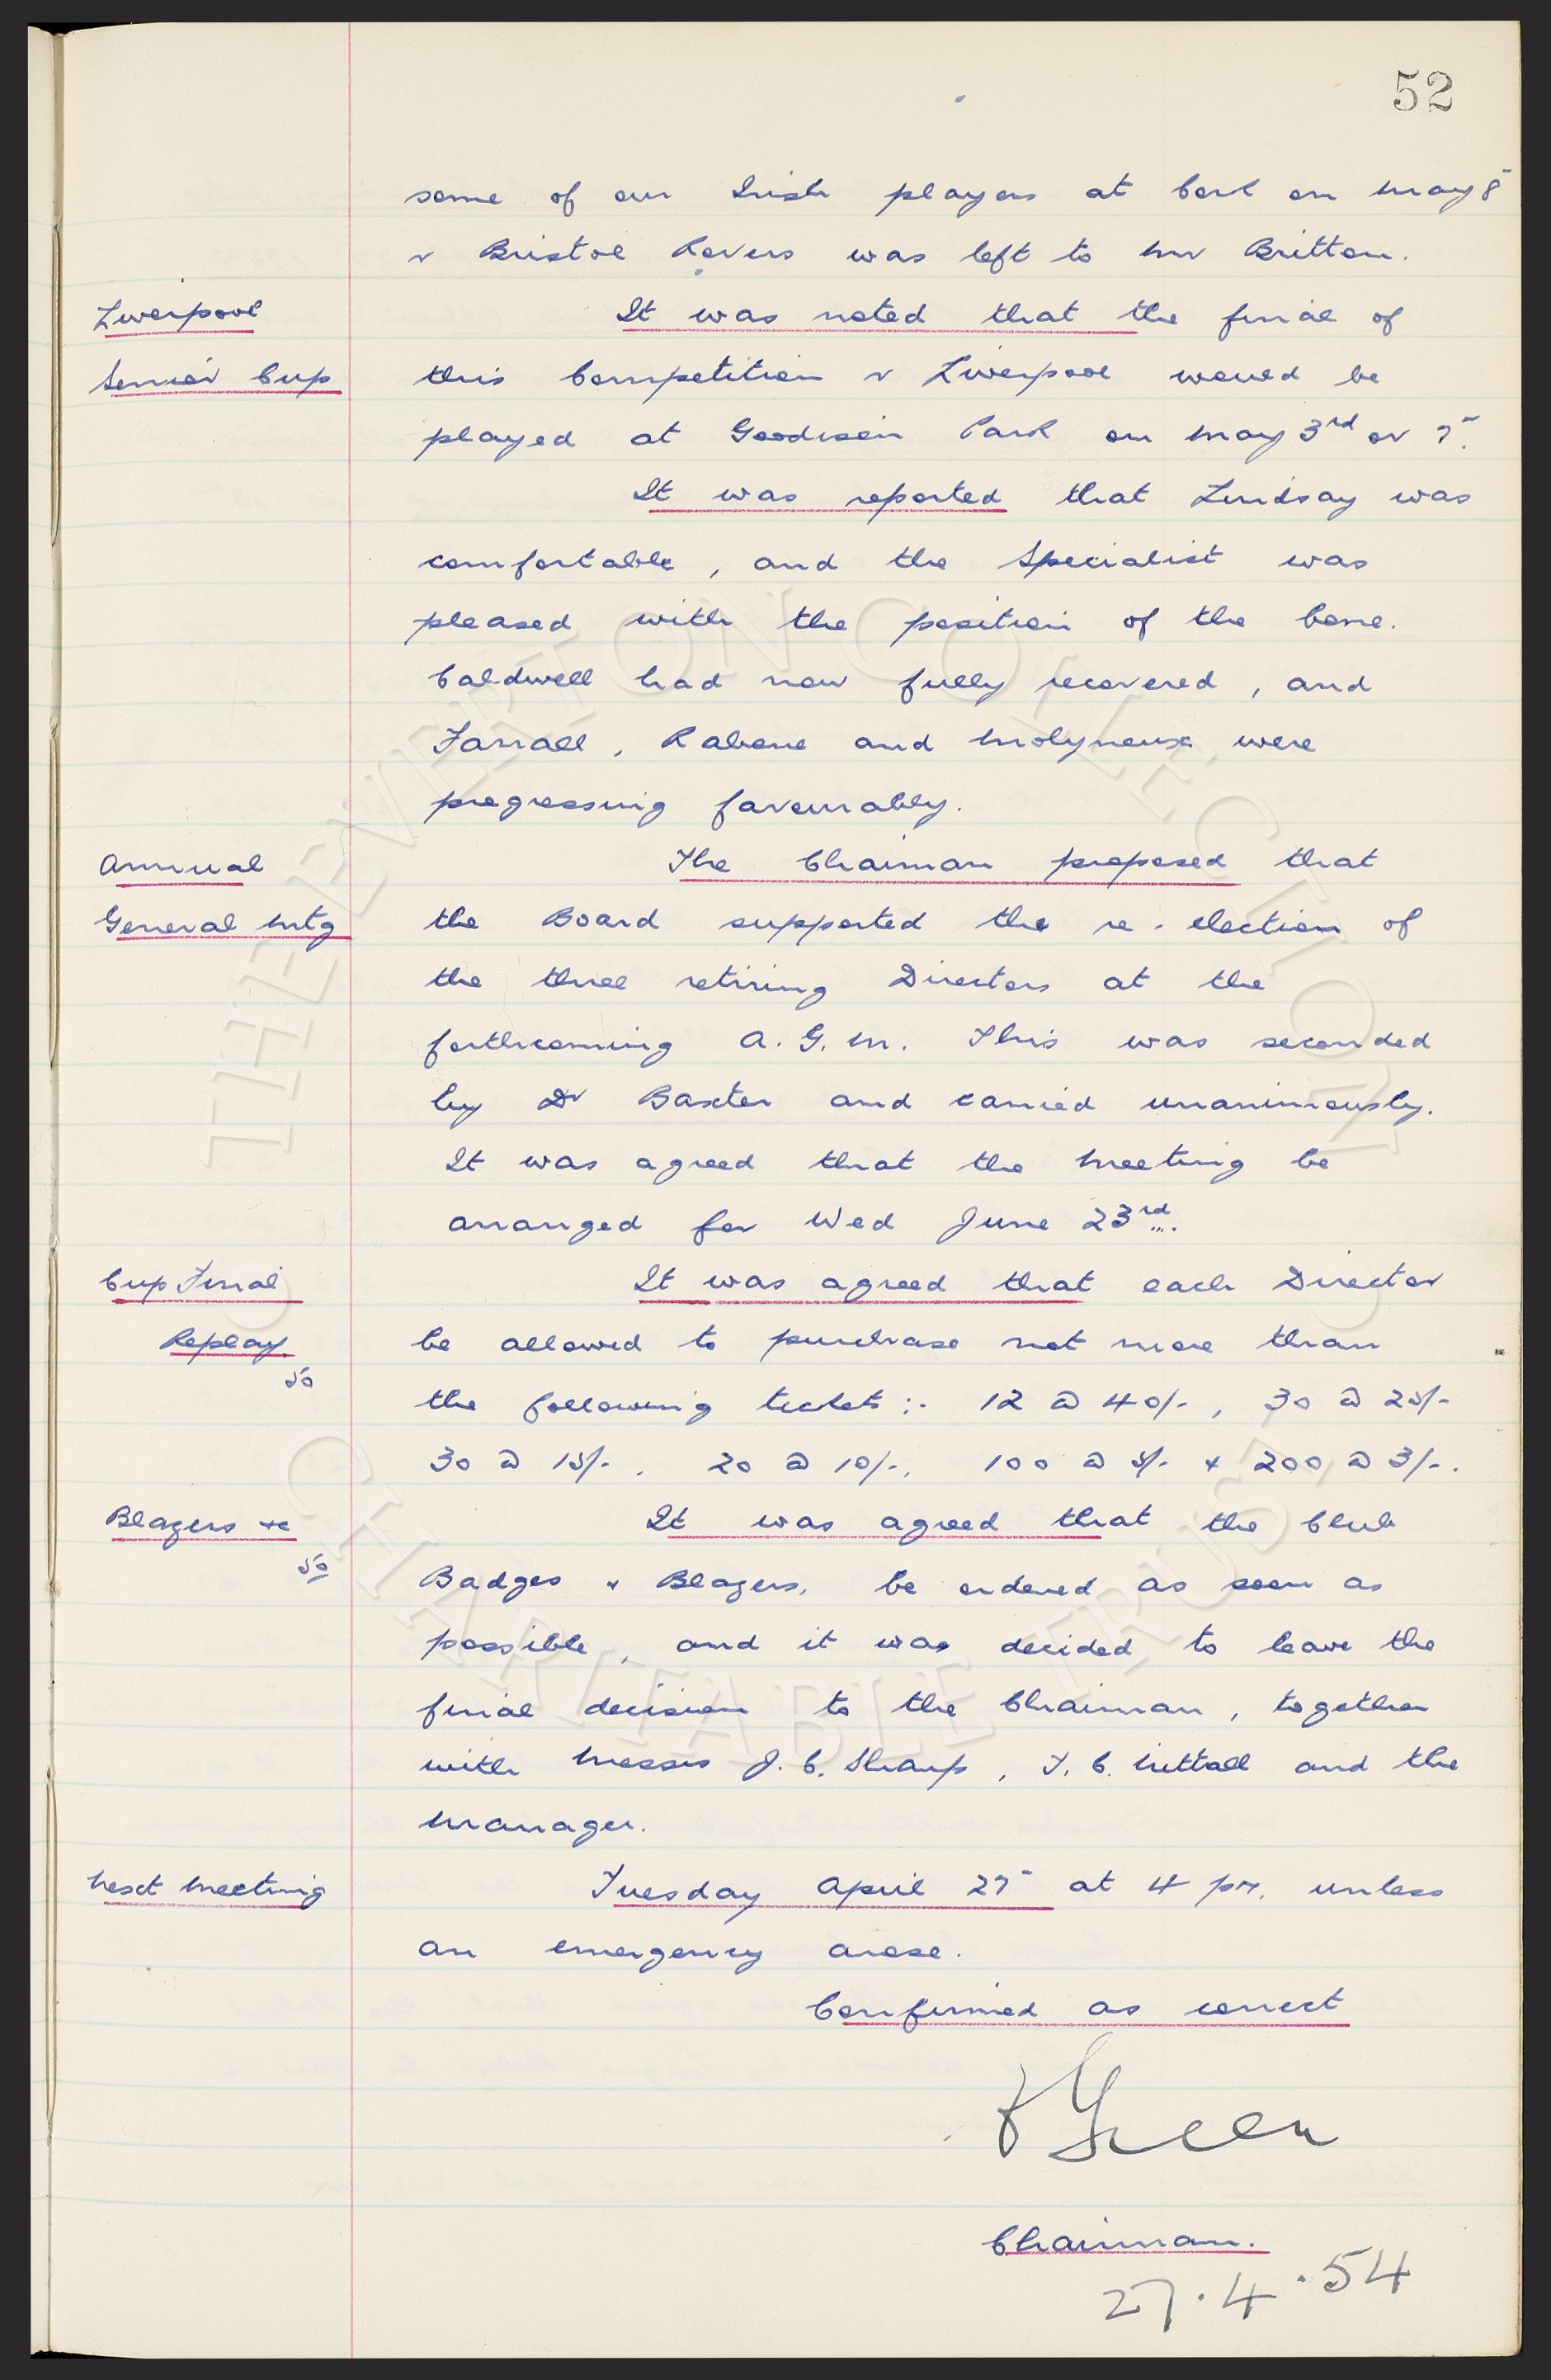 52
some of our Irish players at Cork on May 8
v Bristol Rovers was left to Mr Britton.
Liverpool It was noted that the final of
Senior Cup this Competition v Liverpool would be
played at Goodison Park on May 3rd or 7.
It was reported that Lindsay was
comfortable, and the Specialist was
pleased with the position of the bone.
Caldwell had now fully recovered, and
Farrall, Rabone and Molyneux were
progressing favourably.
Annual The Chairman proposed that
General Mtg the Board supported the re-election of
the three retiring Directors at the
forthcoming A.G.M. This was seconded
by Dr Baxter and carried unanimously.
It was agreed that the meeting be
arranged for Wed June 23rd.
Cup Final It was agreed that each Director
Replay be allowed to purchase not more than
the following tickets :- 12 @ 40/-, 30 @ 25/-
30 @ 15/-, 20 @ 10/-, 100 @ 5/- & 200 @ 3/-.
Blazers &c It was agreed that the Club
Badges & Blazers, be ordered as soon as
possible, and it was decided to leave the
final decision to the Chairman, together
with Messrs J.C. Sharp, T.C. Nuttall and the
Manager.
Next Meeting Tuesday April 27 at 4 pm. unless
an emergency arose.
Confirmed as correct
Green
Chairman.
27.4.54
THE EVERTON COLLECTION
CHARITABLE TRUST